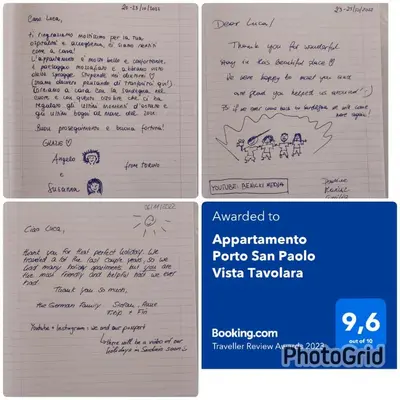 20-23/10/2022
Caro Luca,
ti ringraziamo moltissimo per la tua
ospitalità e accoglienza, ci siamo sentiti
come a casa!
L'appartamento è molto bello e confortevole,
il paesaggio mozzafiato e abbiamo visto
delle spiagge stupende nei dintorni ♡
(siamo davvero piaciuti di tranquillità qui!).
Torniamo a casa con la Sardegna nel
cuore e con questo ottobre che ci ha
regalato gli ultimi momenti d'estate e
gli ultimi bagni al mare del 2022.
Buon proseguimento e buona fortuna!
GRAZIE ♡
Angelo
e
Susanna
from TORINO
23-29/10/2022
Dear Luca!
Thank you for wonderful
stay in this beautiful place ♡
We were happy to meet you
and glad you helped us around! :)
If we ever come back to Sardegna we will come
here again!
YOUTUBE:
Ciao Luca,
thank you for that perfect holiday. We
traveled a lot the last couple years, so we
had many holiday apartments but you are
the most friendly and helpful host we ever
had.
Thank you so much,
the German Family.
Youtube + Instagram: we and our passport
↳ there will be a video of our
holidays in Sardinia soon :)
Awarded to
Appartamento
Porto San Paolo
Vista Tavolara
Booking.com
Traveller Review Awards 2022
9,6
out of 10
PhotoGrid